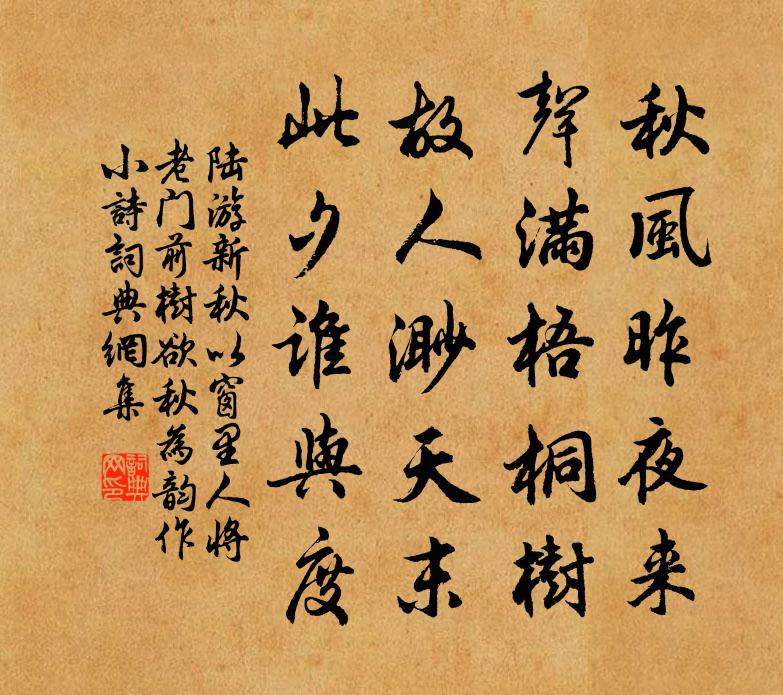 秋風昨夜来
聲滿梧桐樹
故人渺天末
此夕誰與度
陆游新秋以窗里人將
老门前樹欲秋為韵作
小詩詞典網集
詞典
网印